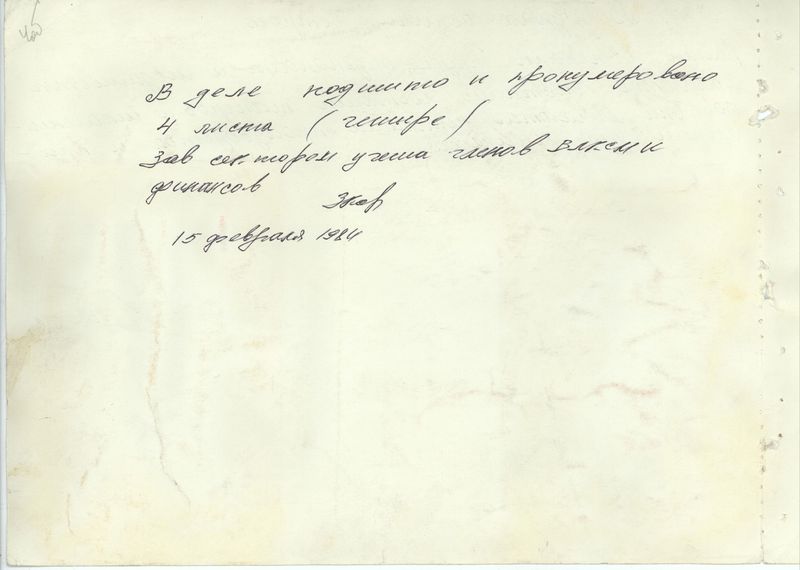 В деле подшито и пронумеровано
4 листа (четыре)
Зав сектором учета членов ВЛКСМ и
финансов
15 февраля 1984